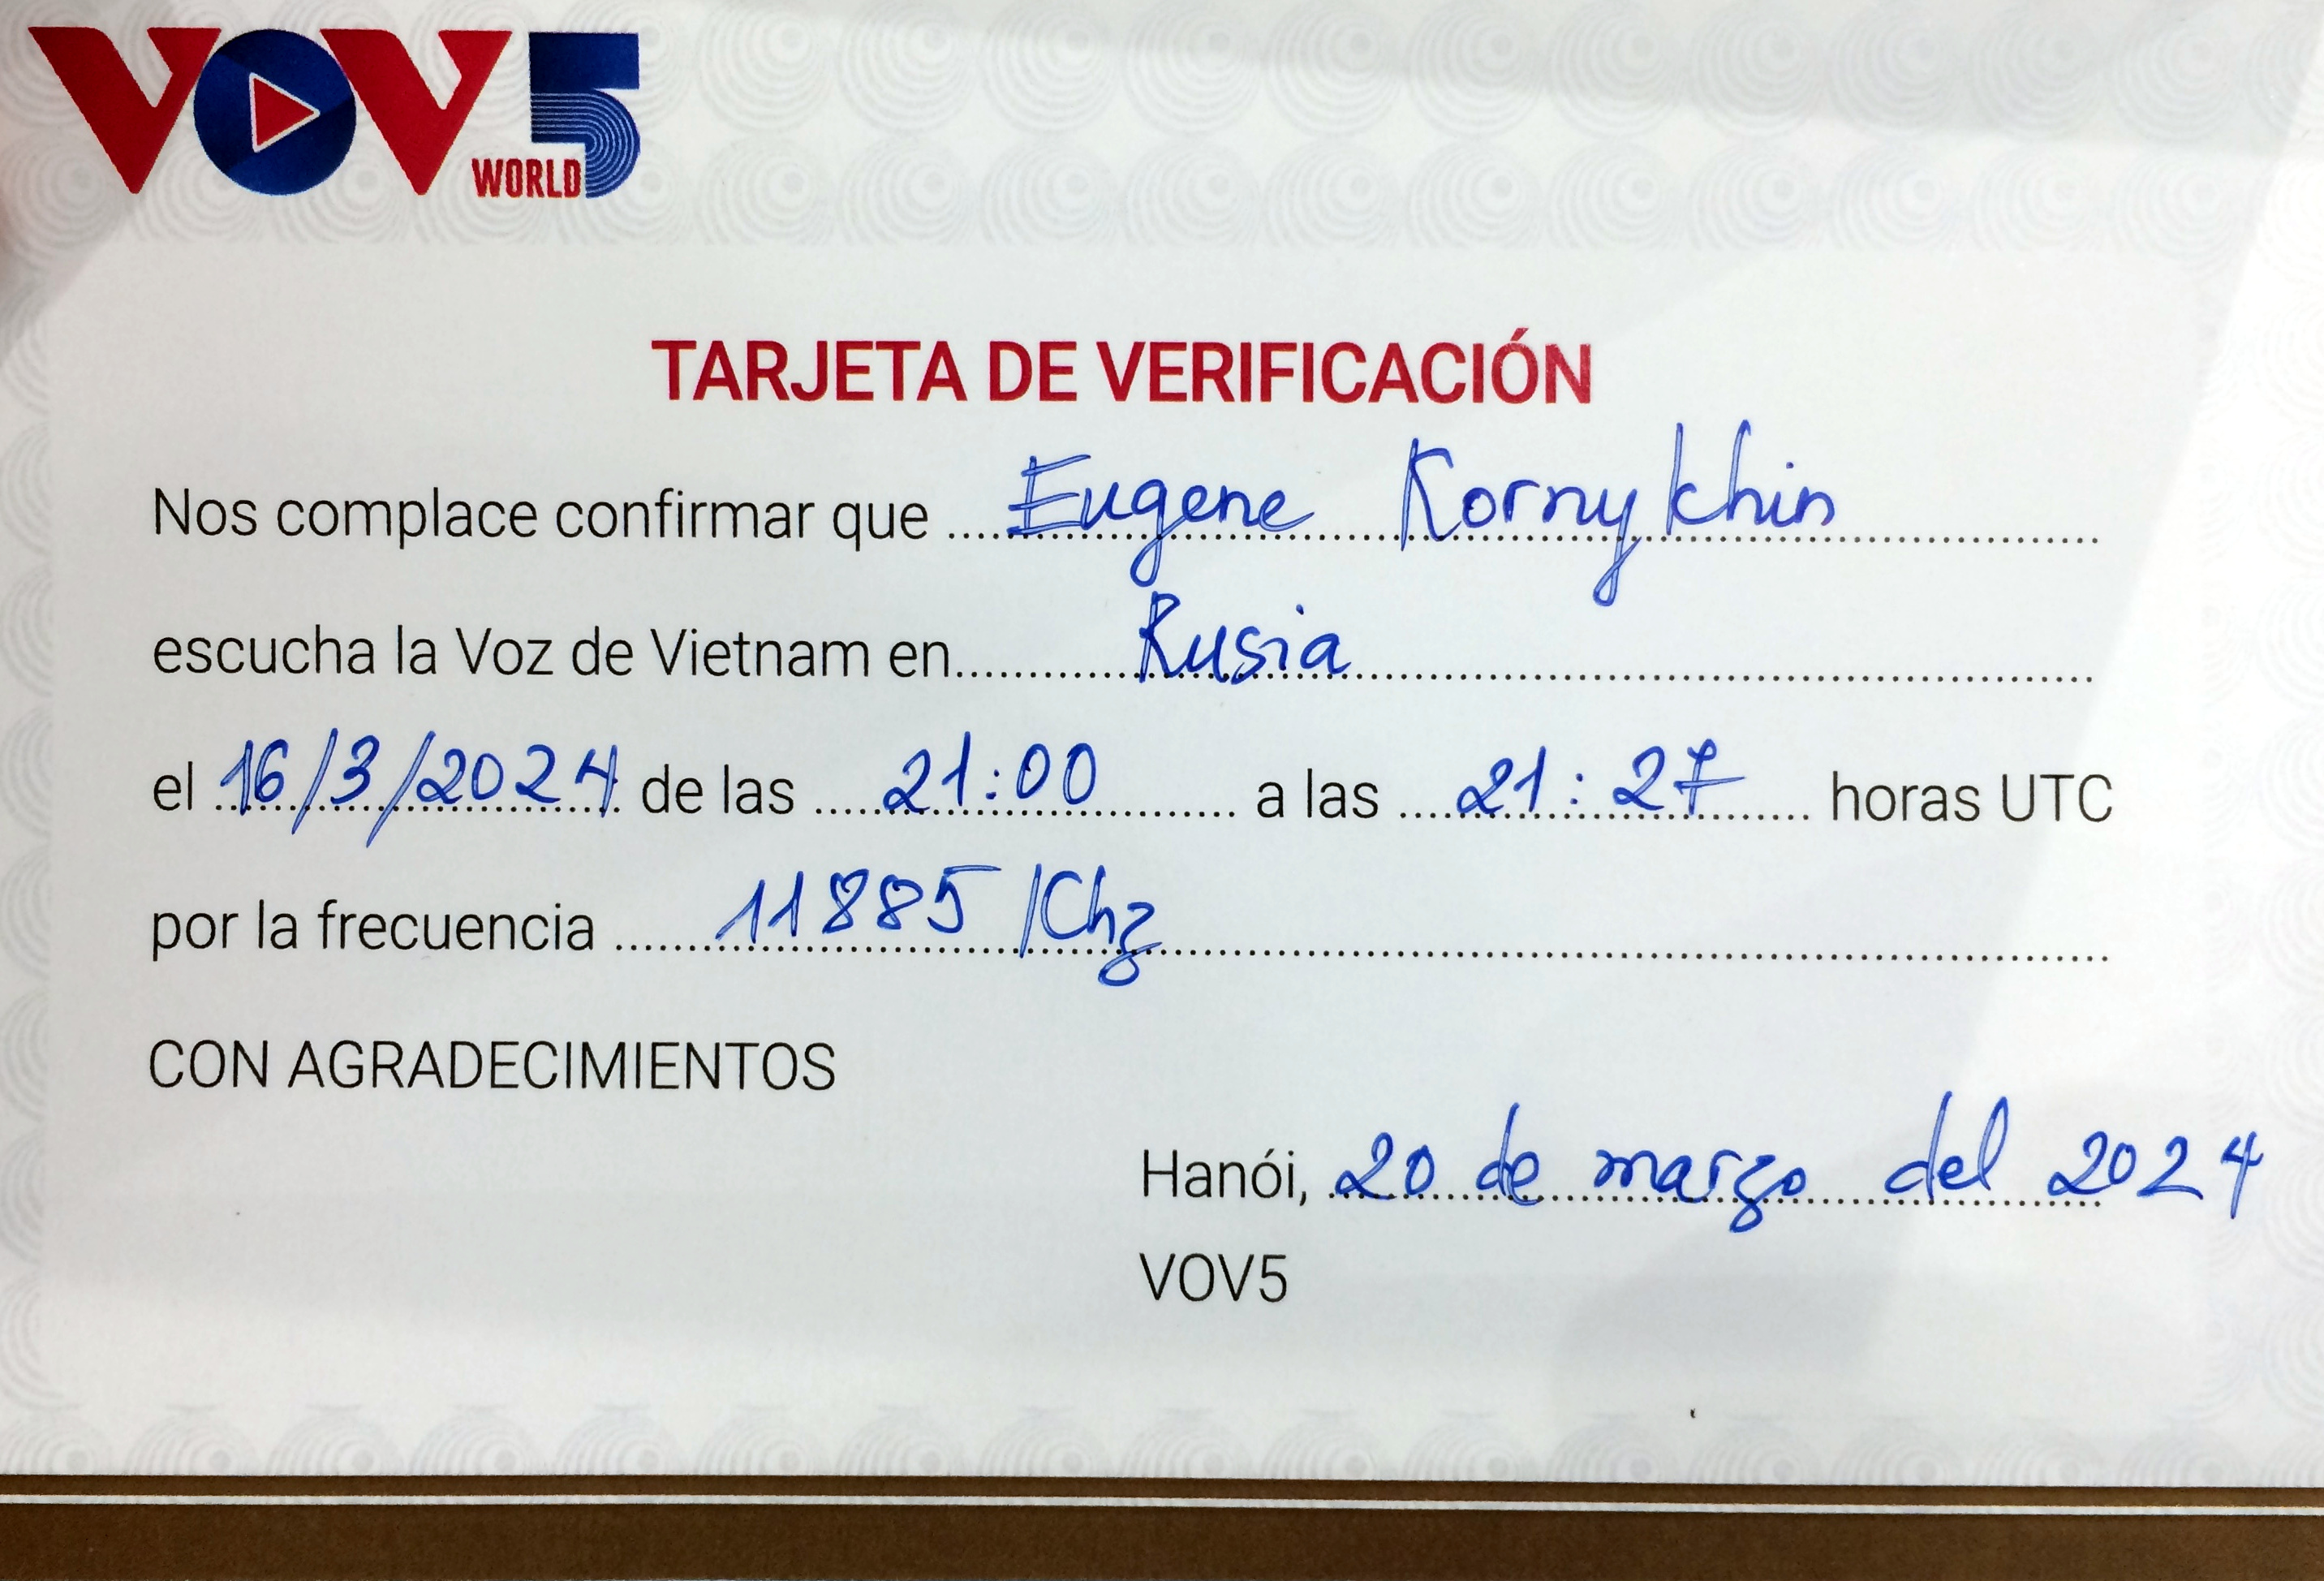 VOV5
WORLD
TARJETA DE VERIFICACIÓN
Nos complace confirmar que Eugene Kornykhin
escucha la Voz de Vietnam en Rusia
el 16/3/2024 de las 21:00 a las 21:27 horas UTC
por la frecuencia 11885 Khz
CON AGRADECIMIENTOS
Hanói, 20 de marzo del 2024
VOV5